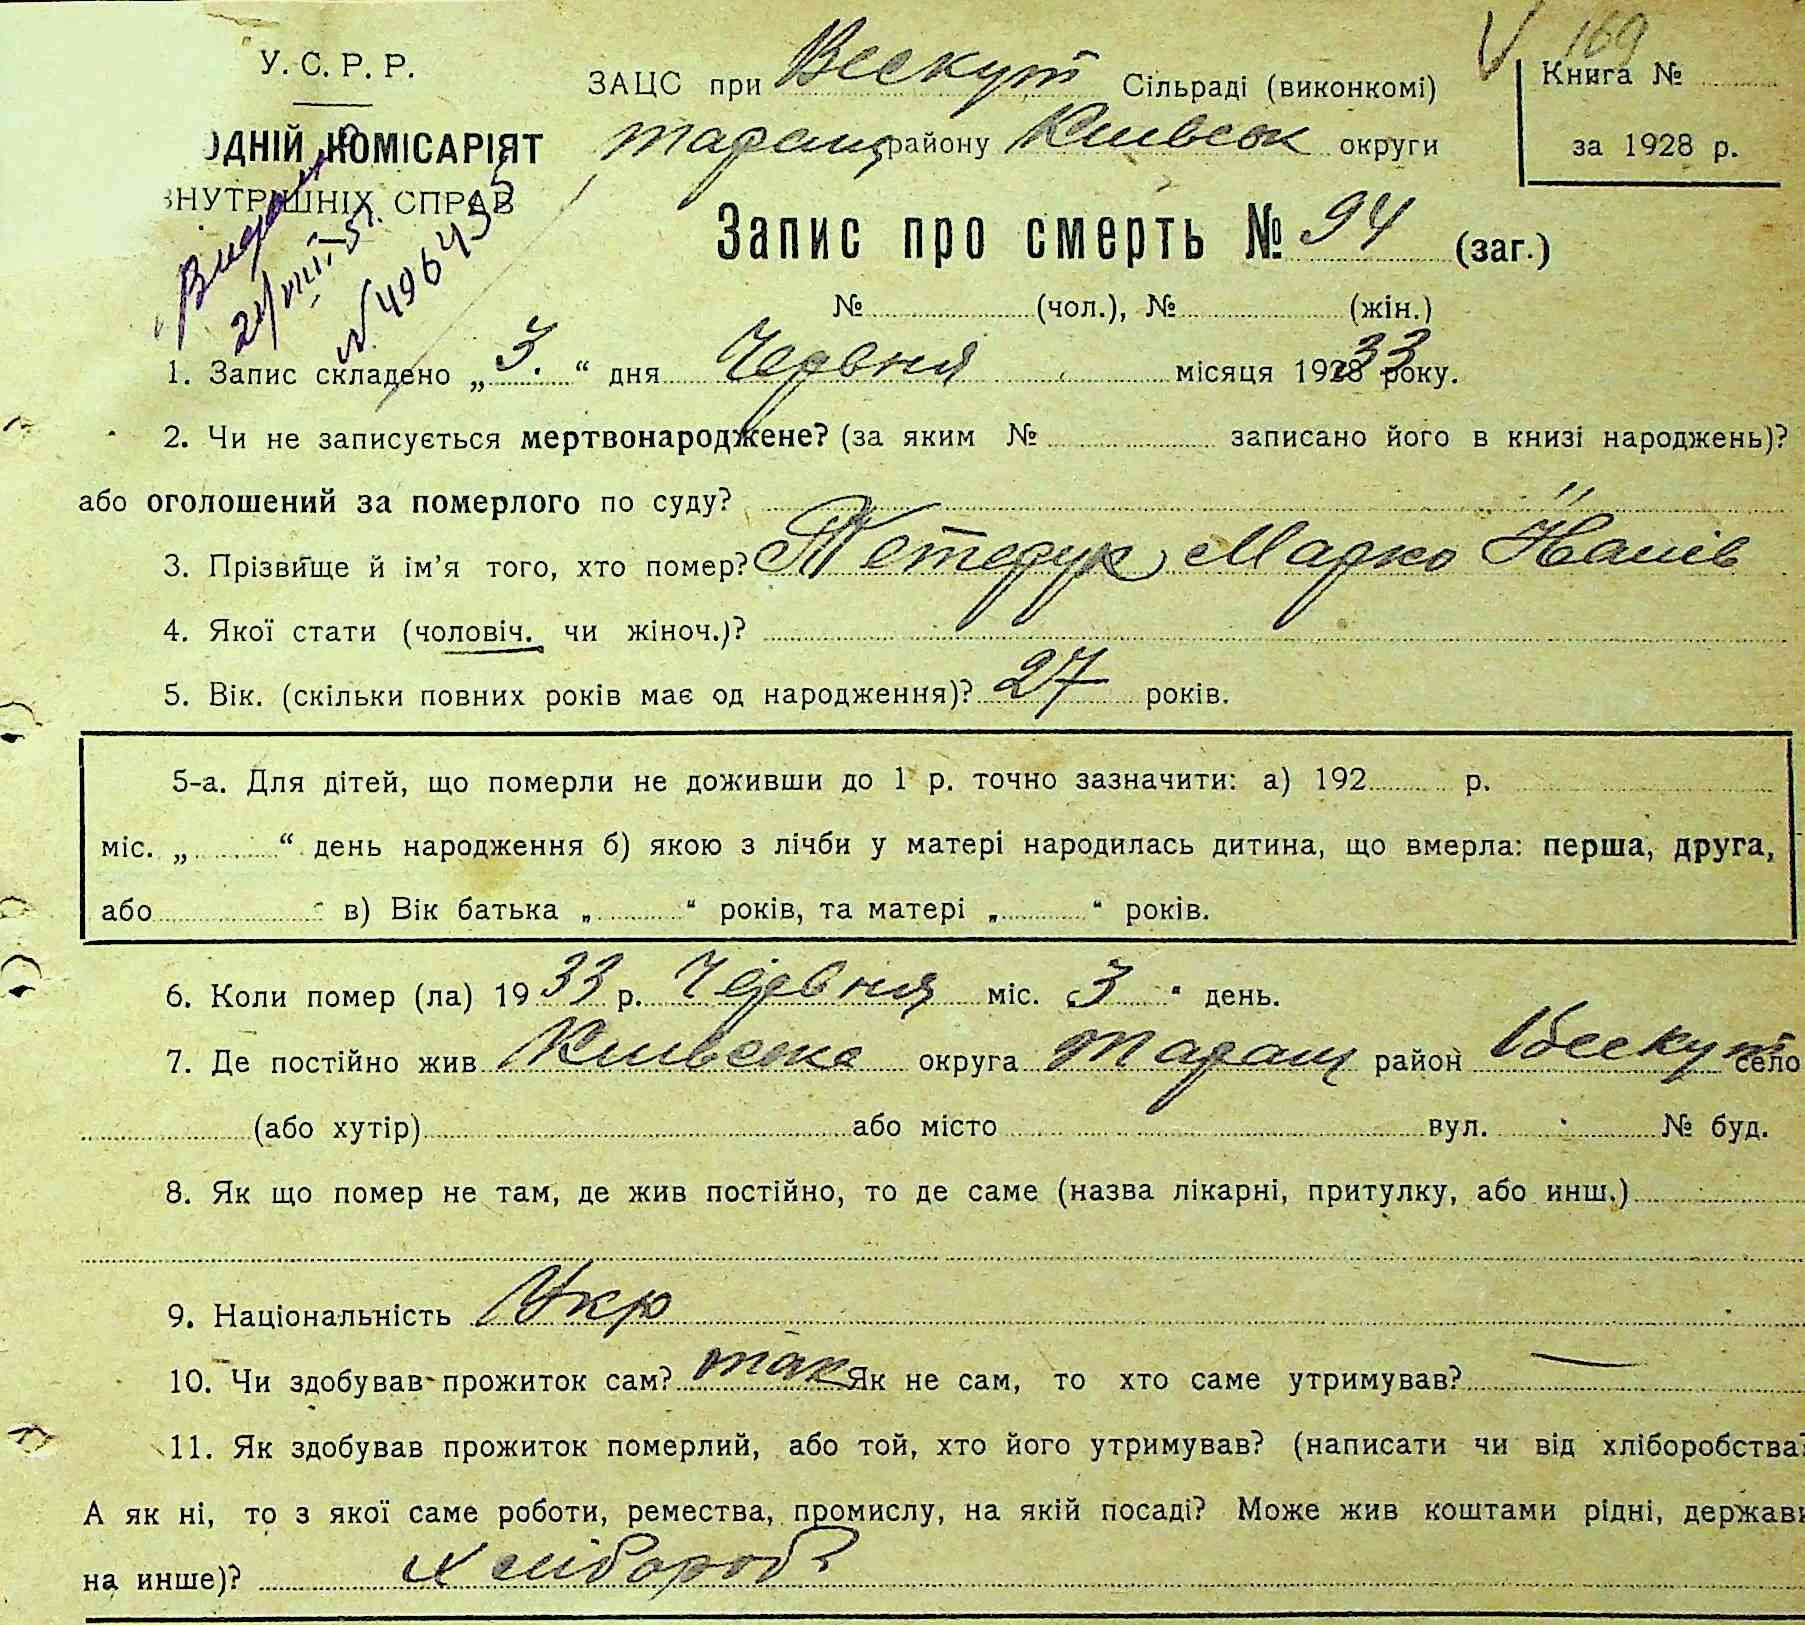 У. С. Р. Р.
ОДНІЙ КОМІСАРІЯТ
ВНУТРІШНІХ СПРАВ
24/VIII-51.
№ 496435
ЗАЦС при Вескут Сільраді (виконкомі)
Таращ району Київськ округи
169
Книга №
за 1928 р.
Запис про смерть № 94 (заг.)
№ (чол.), № (жін.)
1. Запис складено „ 3. “ дня Червня місяця 192833 року.
2. Чи не записується мертвонароджене? (за яким № записано його в книзі народжень)?
або оголошений за померлого по суду?
3. Прізвище й ім’я того, хто помер? Марко
4. Якої стати (чоловіч. чи жіноч.)?
5. Вік. (скільки повних років має од народження)? 27 років.
5-а. Для дітей, що померли не доживши до 1 р. точно зазначити: а) 192 р.
міс. „ “ день народження б) якою з лічби у матері народилась дитина, що вмерла: перша, друга,
або в) Вік батька „ “ років, та матері „ “ років.
6. Коли помер (ла) 1933 р. Червня міс. 3 день.
7. Де постійно жив Київська округа Таращ район Вескут село
(або хутір) або місто вул. № буд.
8. Як що помер не там, де жив постійно, то де саме (назва лікарні, притулку, або инш.)
9. Національність Укр
10. Чи здобував прожиток сам? так Як не сам, то хто саме утримував? —
11. Як здобував прожиток померлий, або той, хто його утримував? (написати чи від хліборобства?
А як ні, то з якої саме роботи, ремества, промислу, на якій посаді? Може жив коштами рідні, держави
на инше)? хлібороб